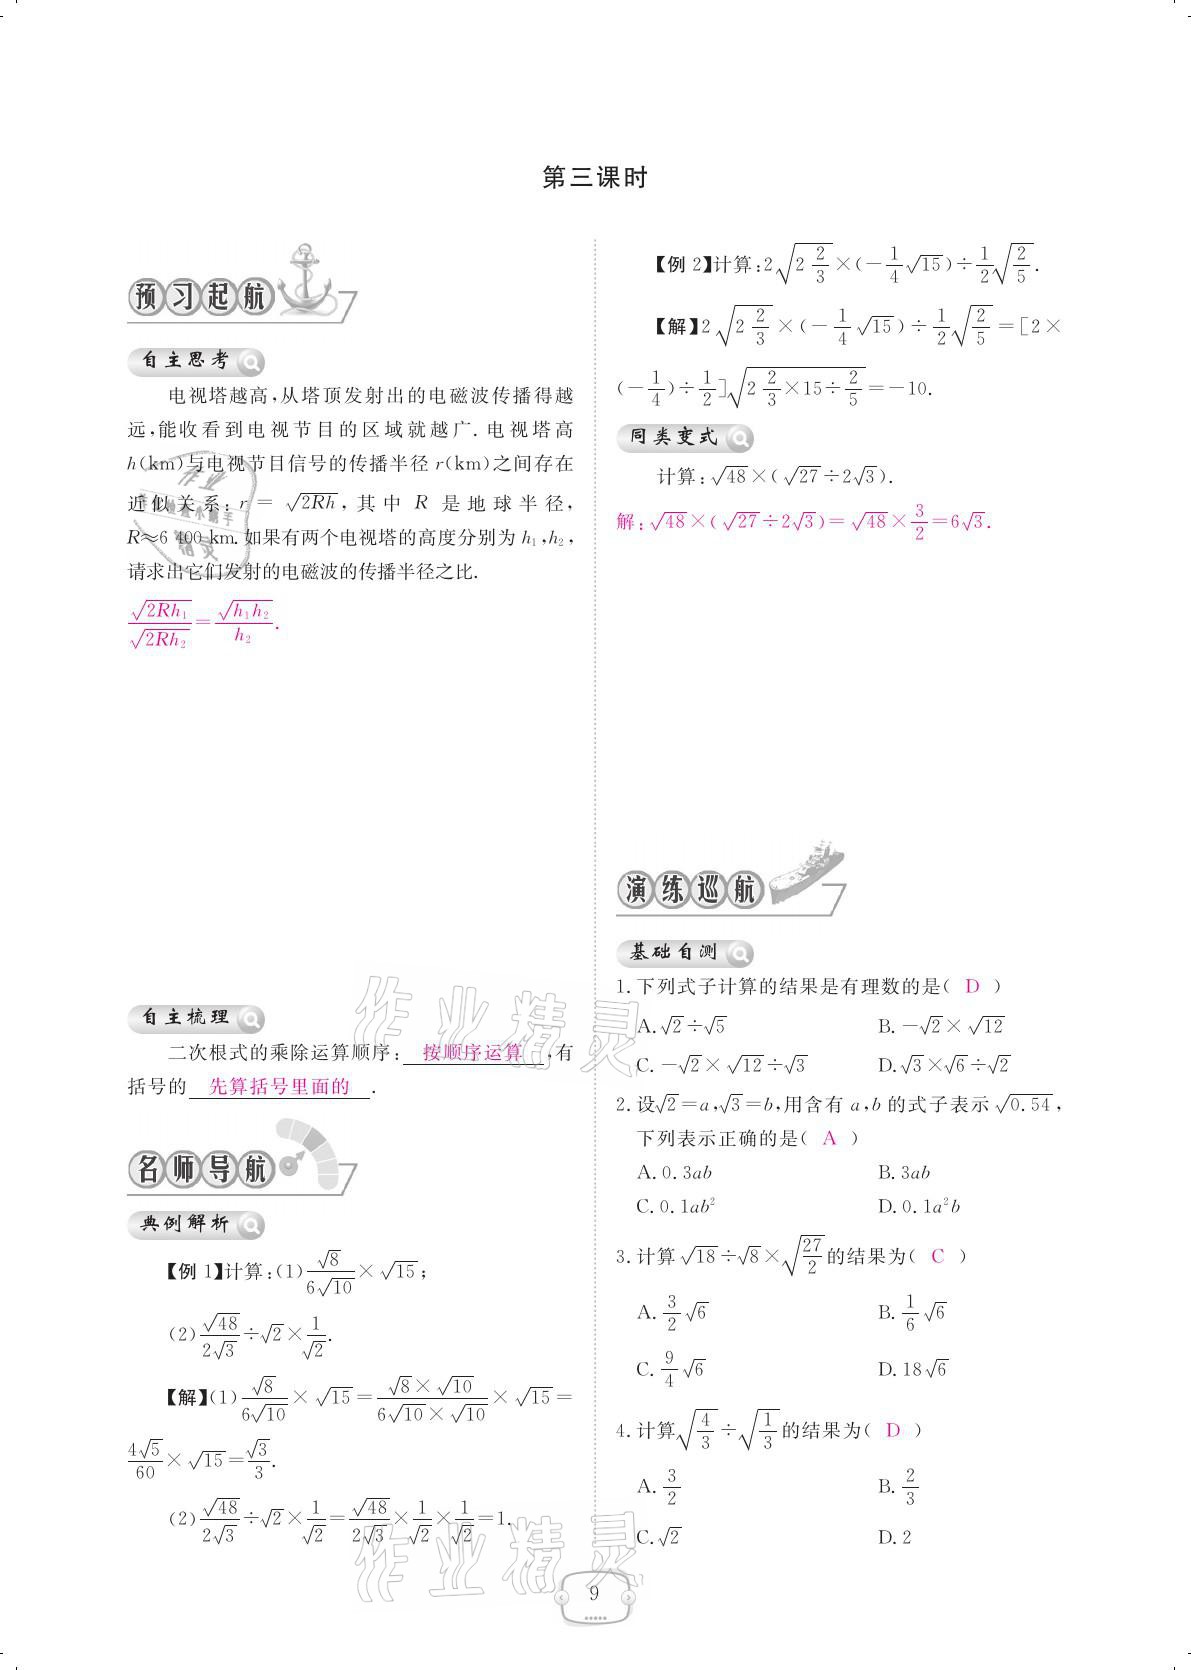 第三课时
预习起航
自主思考
电视塔越高,从塔顶发射出的电磁波传播得越
远,能收看到电视节目的区域就越广. 电视塔高
h(km)与电视节目信号的传播半径 r(km)之间存在
近似关系: r = √(2Rh), 其中 R 是地球半径,
R≈6 400 km. 如果有两个电视塔的高度分别为 h₁,h₂,
请求出它们发射的电磁波的传播半径之比.
√(2Rh₁)/√(2Rh₂)=√(h₁h₂)/h₂.
自主梳理
二次根式的乘除运算顺序: 按顺序运算 ,有
括号的 先算括号里面的 .
名师导航
典例解析
【例 1】计算:(1)√8/(6√10)×√15;
(2)√48/(2√3)÷√2×1/√2.
【解】(1)√8/(6√10)×√15=(√8×√10)/(6√10×√10)×√15=
4√5/60×√15=√3/3.
(2)√48/(2√3)÷√2×1/√2=√48/(2√3)×1/√2×1/√2=1.
【例 2】计算:2√(2 2/3)×(−1/4√15)÷1/2√(2/5).
【解】2√(2 2/3)×(−1/4√15)÷1/2√(2/5)=[2×
(−1/4)÷1/2]√(2 2/3×15÷2/5)=−10.
同类变式
计算:√48×(√27÷2√3).
解:√48×(√27÷2√3)=√48×3/2=6√3.
演练巡航
基础自测
1. 下列式子计算的结果是有理数的是( D )
A. √2÷√5 B. −√2×√12
C. −√2×√12÷√3 D. √3×√6÷√2
2. 设√2=a,√3=b,用含有 a,b 的式子表示√0.54,
下列表示正确的是( A )
A. 0.3ab B. 3ab
C. 0.1ab² D. 0.1a²b
3. 计算√18÷√8×√(27/2)的结果为( C )
A. 3/2√6 B. 1/6√6
C. 9/4√6 D. 18√6
4. 计算√(4/3)÷√(1/3)的结果为( D )
A. 3/2 B. 2/3
C. √2 D. 2
作业精灵
作业精灵
9